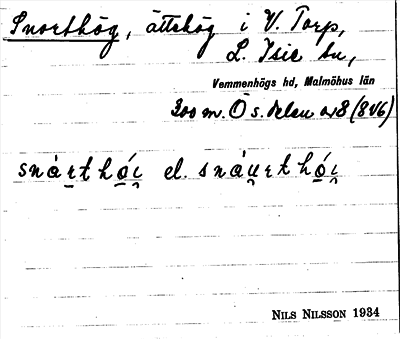 Snorthög, ättehög i V. Torp,
L. Isie sn,
Vemmenhögs hd, Malmöhus län
300 m. Ö s. delen av 8 (8V6)
snȧrt hǫ́i̯ el. snȧu̯rt hǫ́i̯
NILS NILSSON 1934